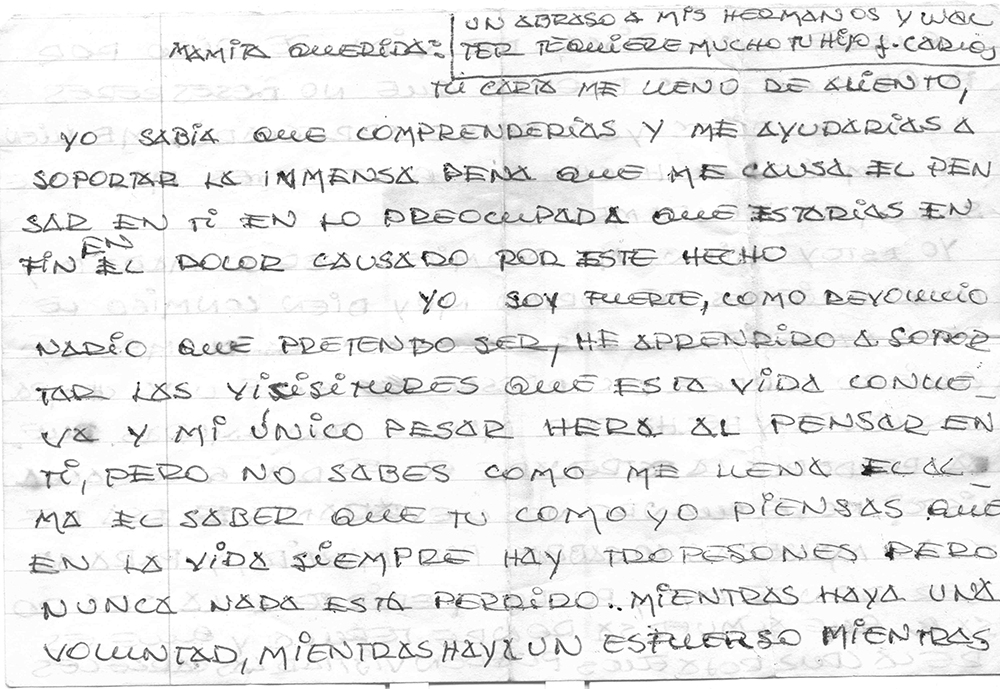 UN ABRASO A MIS HERMANOS Y WAL
TER TE QUIERE MUCHO TU HIJO J. CARLOS
MAMITA QUERIDA:
TU CARTA ME LLENO DE ALIENTO,
YO SABIA QUE COMPRENDERIAS Y ME AYUDARIAS A
SOPORTAR LA INMENSA PENA QUE ME CAUSA EL PEN
SAR EN TI EN LO PREOCUPADA QUE ESTARIAS EN
FIN EN EL DOLOR CAUSADO POR ESTE HECHO
YO SOY FUERTE, COMO REVOLUCIO
NARIO QUE PRETENDO SER, HE APRENDIDO A SOPOR
TAR LAS VISISITUDES QUE ESTA VIDA CONLLE_
VA Y MI ÚNICO PESAR HERA AL PENSAR EN
TI, PERO NO SABES COMO ME LLENA EL AL_
MA EL SABER QUE TU COMO YO PIENSAS QUE
EN LA VIDA SIEMPRE HAY TROPESONES PERO
NUNCA NADA ESTA PERDIDO.. MIENTRAS HAYA UNA
VOLUNTAD, MIENTRAS HAYA UN ESFUERSO MIENTRAS